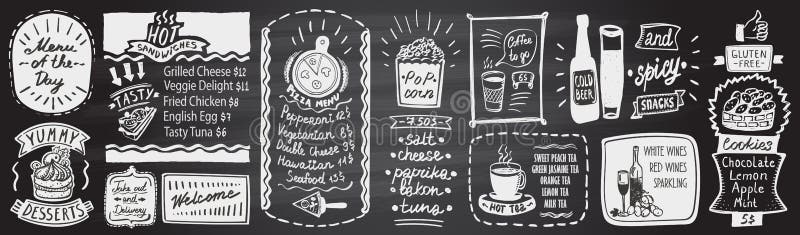 Menu
of the
Day
YUMMY
DESSERTS
HOT
SANDWICHES
TASTY
Grilled Cheese $12
Veggie Delight $11
Fried Chicken $8
English Egg $7
Tasty Tuna $6
Take out
and
Delivery
Welcome
PIZZA MENU
Pepperoni 12$
Vegetarian 8$
Double Cheese 9$
Hawaiian 11$
Seafood 13$
POP
corn
7.50$
salt
cheese
paprika
bakon
tuna
Coffee
to go
6$
HOT TEA
SWEET PEACH TEA
GREEN JASMINE TEA
ORANGE TEA
LEMON TEA
MILK TEA
COLD
BEER
and
spicy
SNACKS
WHITE WINES
RED WINES
SPARKLING
GLUTEN
FREE
Cookies
Chocolate
Lemon
Apple
Mint
5$